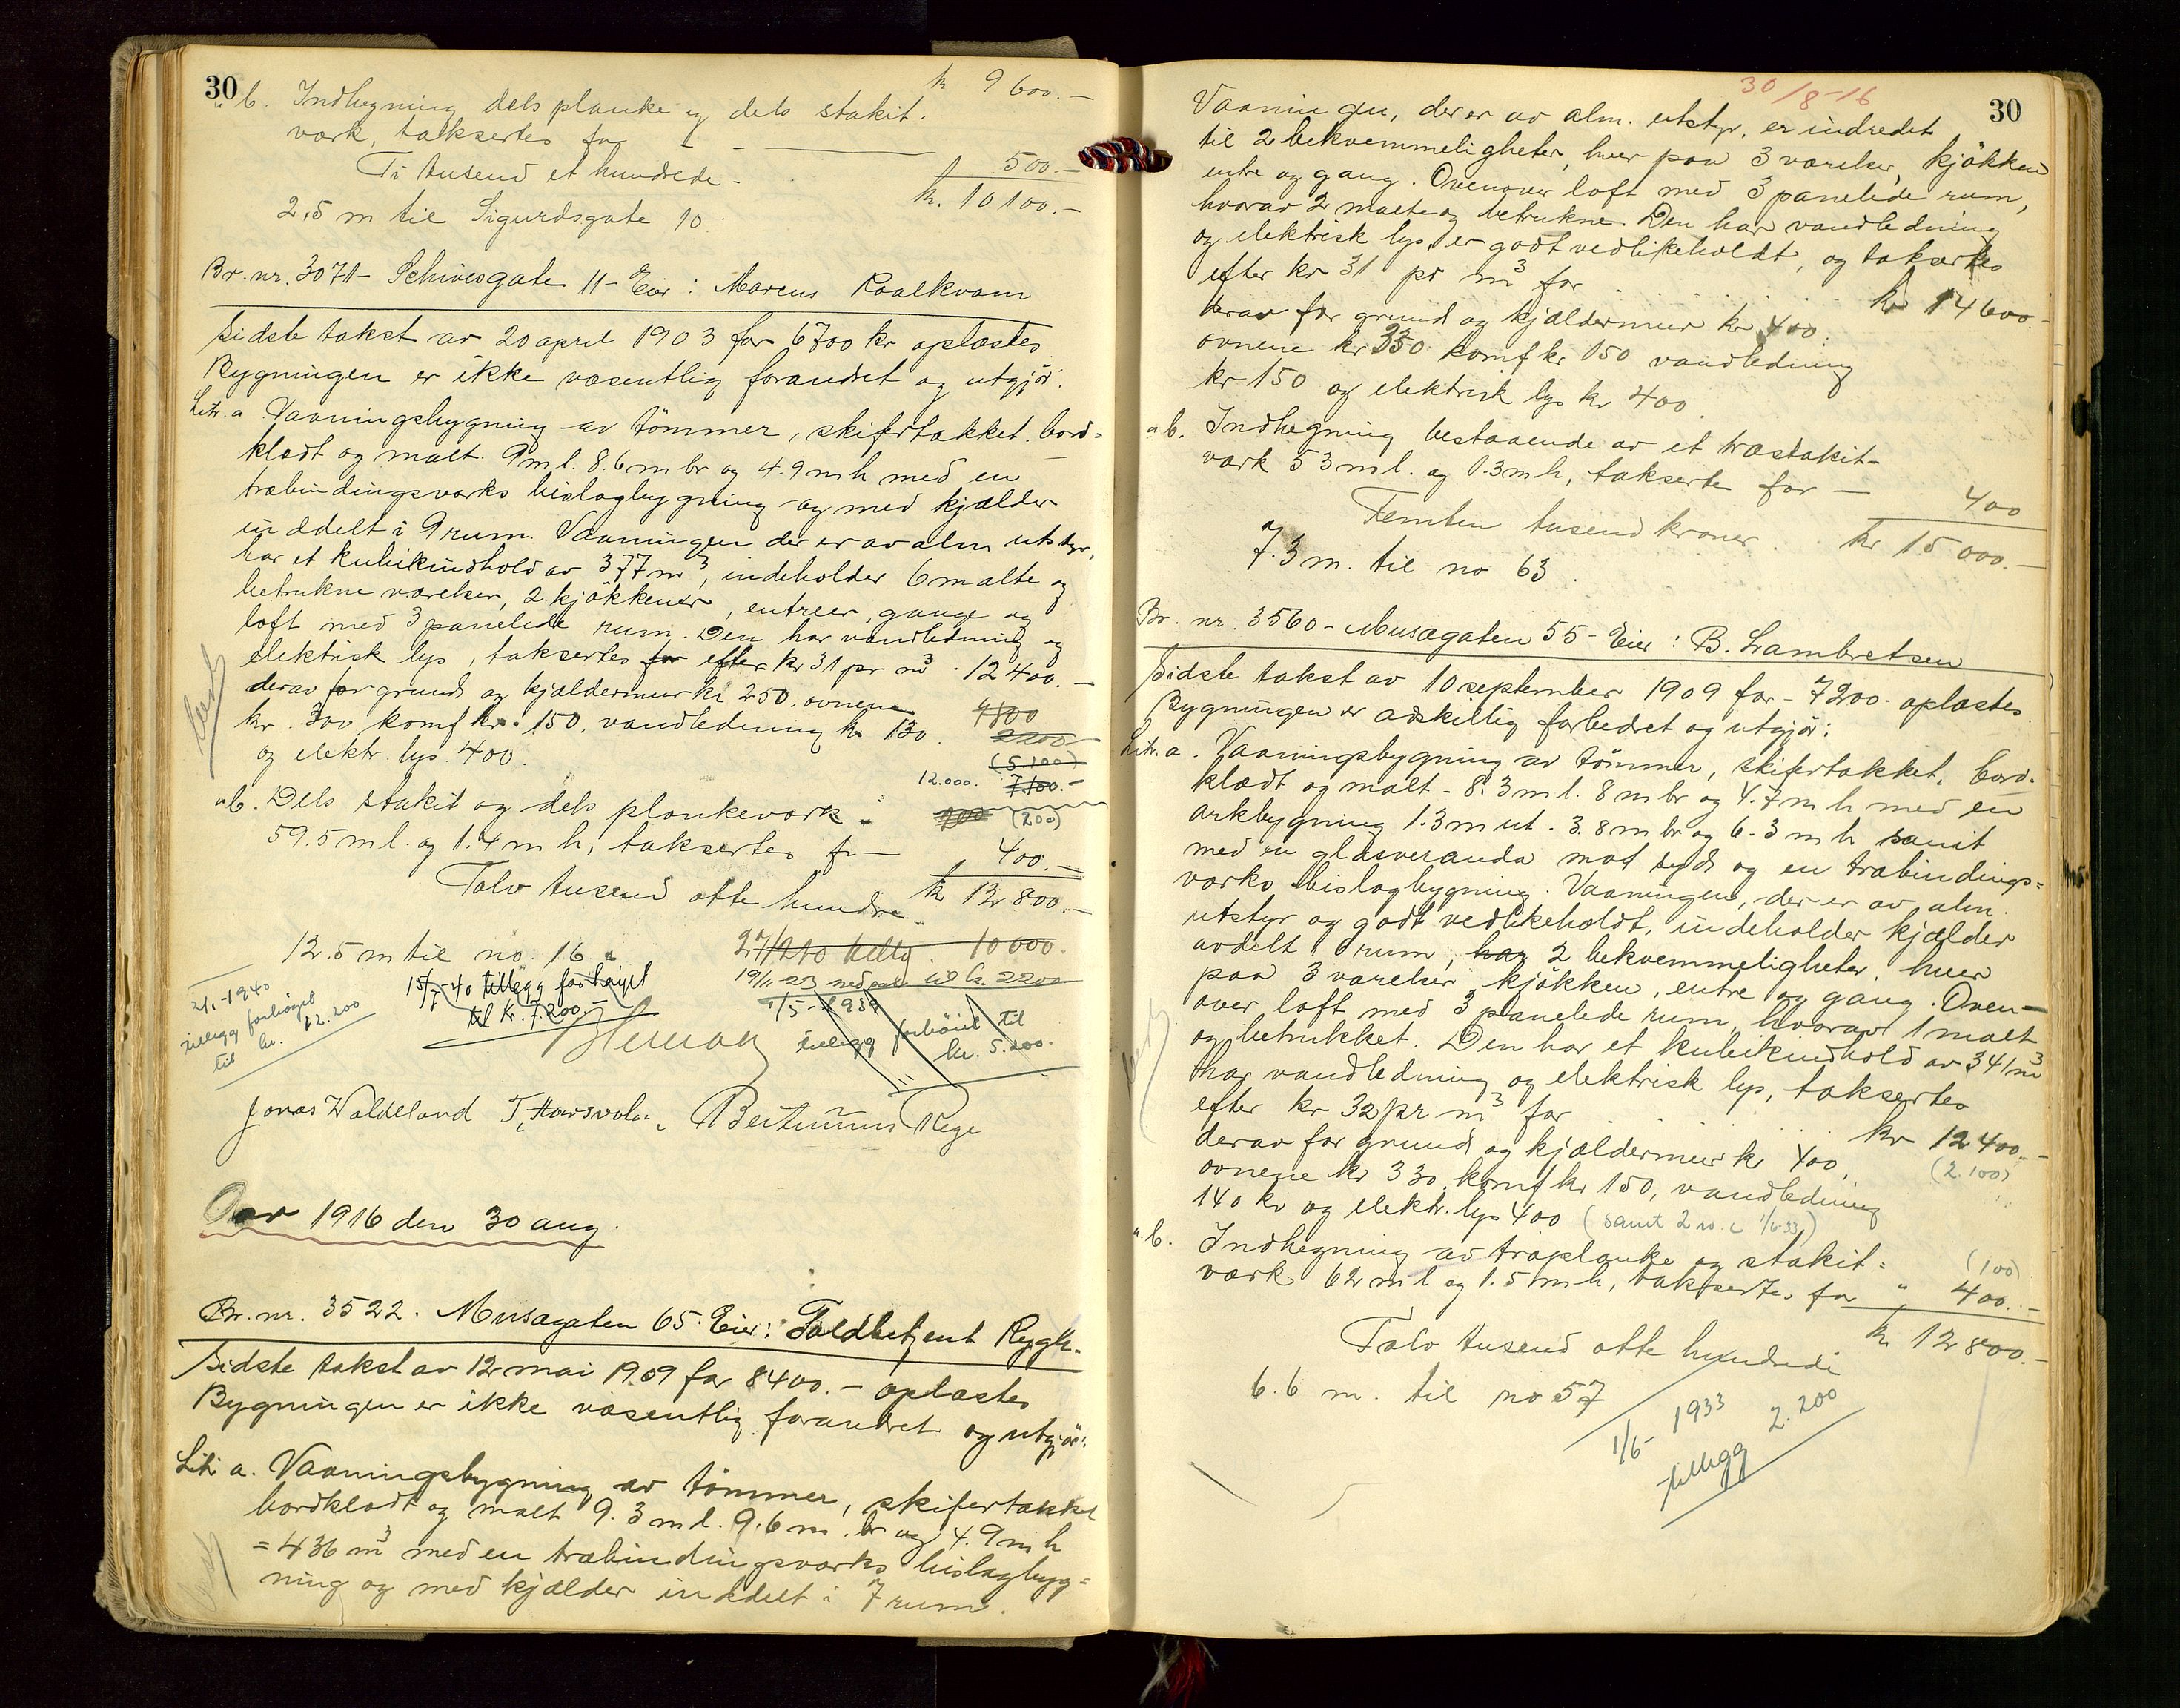 30
kr 9600.-
"b. Indhegning dels planke og dels stakit.
værk, taksertes for
500.-
Ti tusend et hundrede -
kr. 10100.-
2.5 m til Sigurdsgate 10.
Br. nr. 3071 - Schivesgate 11 - Eier: Marcus Raalkvam
Sidste takst av 20 april 1903 for 6700 kr oplæstes
Bygningen er ikke væsentlig forandret og utgjör:
Litr. a. Vaaningsbygning av tömmer, skifertækket, bord-
klædt og malt. 9 m l. 8.6 m br og 4.9 m h med en
træbindingsværks bislagbygning og med kjælder
inddelt i 9 rum. Vaaningen der er av alm utstyr,
har et kubikindhold av 377 m³, indeholder 6 malte og
betrukne værelser, 2 kjøkkener, entreer, gange og
loft med 3 panelede rum. Den har vandledning og
elektrisk lys, taksertes for efter kr 31 pr m³ - 12400.-
derav for grund og kjældermur kr 250, ovnene
kr. 300 komf kr. 150, vandledning kr 130.
og elektr. lys. 400.
2200
(5.100)
12.000. 7.100.-
"b. Dels stakit og dels plankeværk
900 (200)
59.5 m l. og 1.4 m h, taksertes for -
400.-
Tolv tusend otte hundre
kr 12800.-
12.5 m til no. 16
27/2 20 tillæg 10000.
19/1 23 nedsat til kr. 2200
15/7-40 tillegg forhøyet
til kr. 7.200.-
2/1-1940
tillegg forhøyet
til kr. 12.200
1/5-1939
tillegg forhöiet til
kr. 5.200.
Jonas Waldeland Bertinius Rege
Aar 1916 den 30 aug.
Br. nr. 3522. Musægaten 65. Eier: Toldbetjent Rygh.
Sidste takst av 12 mai 1909 for 8400.- oplæstes
Bygningen er ikke væsentlig forandret og utgjör:
Litr a. Vaaningsbygning av tömmer, skifertækket
bordklædt og malt 9.3 m l. 9.6 m. br og 4.9 m h
= 436 m³ med en træbindingsværks bislagbyg=
ning og med kjælder inddelt i 7 rum.
30/8-16
30
Vaaningen, der er av alm. utstyr, er indredet
til 2 bekvemmeligheter, hver paa 3 værelser, kjökken
entre og gang. Ovenover loft med 3 panelede rum,
hvorav 2 malte og betrukne. Den har vandledning
og elektrisk lys, er godt vedlikeholdt, og taksertes
efter kr 31 pr m³ for
kr 14600.-
derav for grund og kjældermur kr 400.
ovnene kr 350 komf kr 150 vandledning
kr 150 og elektrisk lys kr 400.
"b. Indhegning bestaaende av et træstakit-
værk 53 m l. og 1.3 m h, taksertes for -
400
Femten tusend kroner.
kr 15000.-
7.3 m. til no 63.
Br. nr. 3560 - Musægaten 55 - Eier: B. Lambretsen
Sidste takst av 10 september 1909 for - 7200.- oplæstes.
Bygningen er adskillig forbedret og utgjör:
Litr. a. Vaaningsbygning av tömmer, skifertækket, bord-
klædt og malt - 8.3 m l. 8 m br og 4.7 m h med en
arkbygning 1.3 m ut. 3.8 m br og 6.3 m h samt
med en glasveranda mot syd og en træbindings=
værks bislagbygning. Vaaningen, der er av alm.
utstyr og godt vedlikeholdt, indeholder kjælder
avdelt i rum, har 2 bekvemmeligheter, hver
paa 3 værelser, kjökken, entre og gang. Oven-
over loft med 3 panelede rum, hvorav 1 malt
og betrukket. Den har et kubikindhold av 341 m³
har vandledning og elektrisk lys, taksertes
efter kr 32 pr m³ for
kr 12400.-
derav for grund og kjældermur kr 400,
(2.100)
ovnene kr 330, komf kr 150, vandledning
140 kr og elektr. lys 400 (samt 2 w.c 1/6-33)
"b. Indhegning av træplanke og stakit=
(100)
værk 62 m l og 1.5 m h, taksertes for " 400.-
Tolv tusend otte hundrede
kr 12800.-
6.6 m. til no 57
1/6- 1933
tillegg 2.200